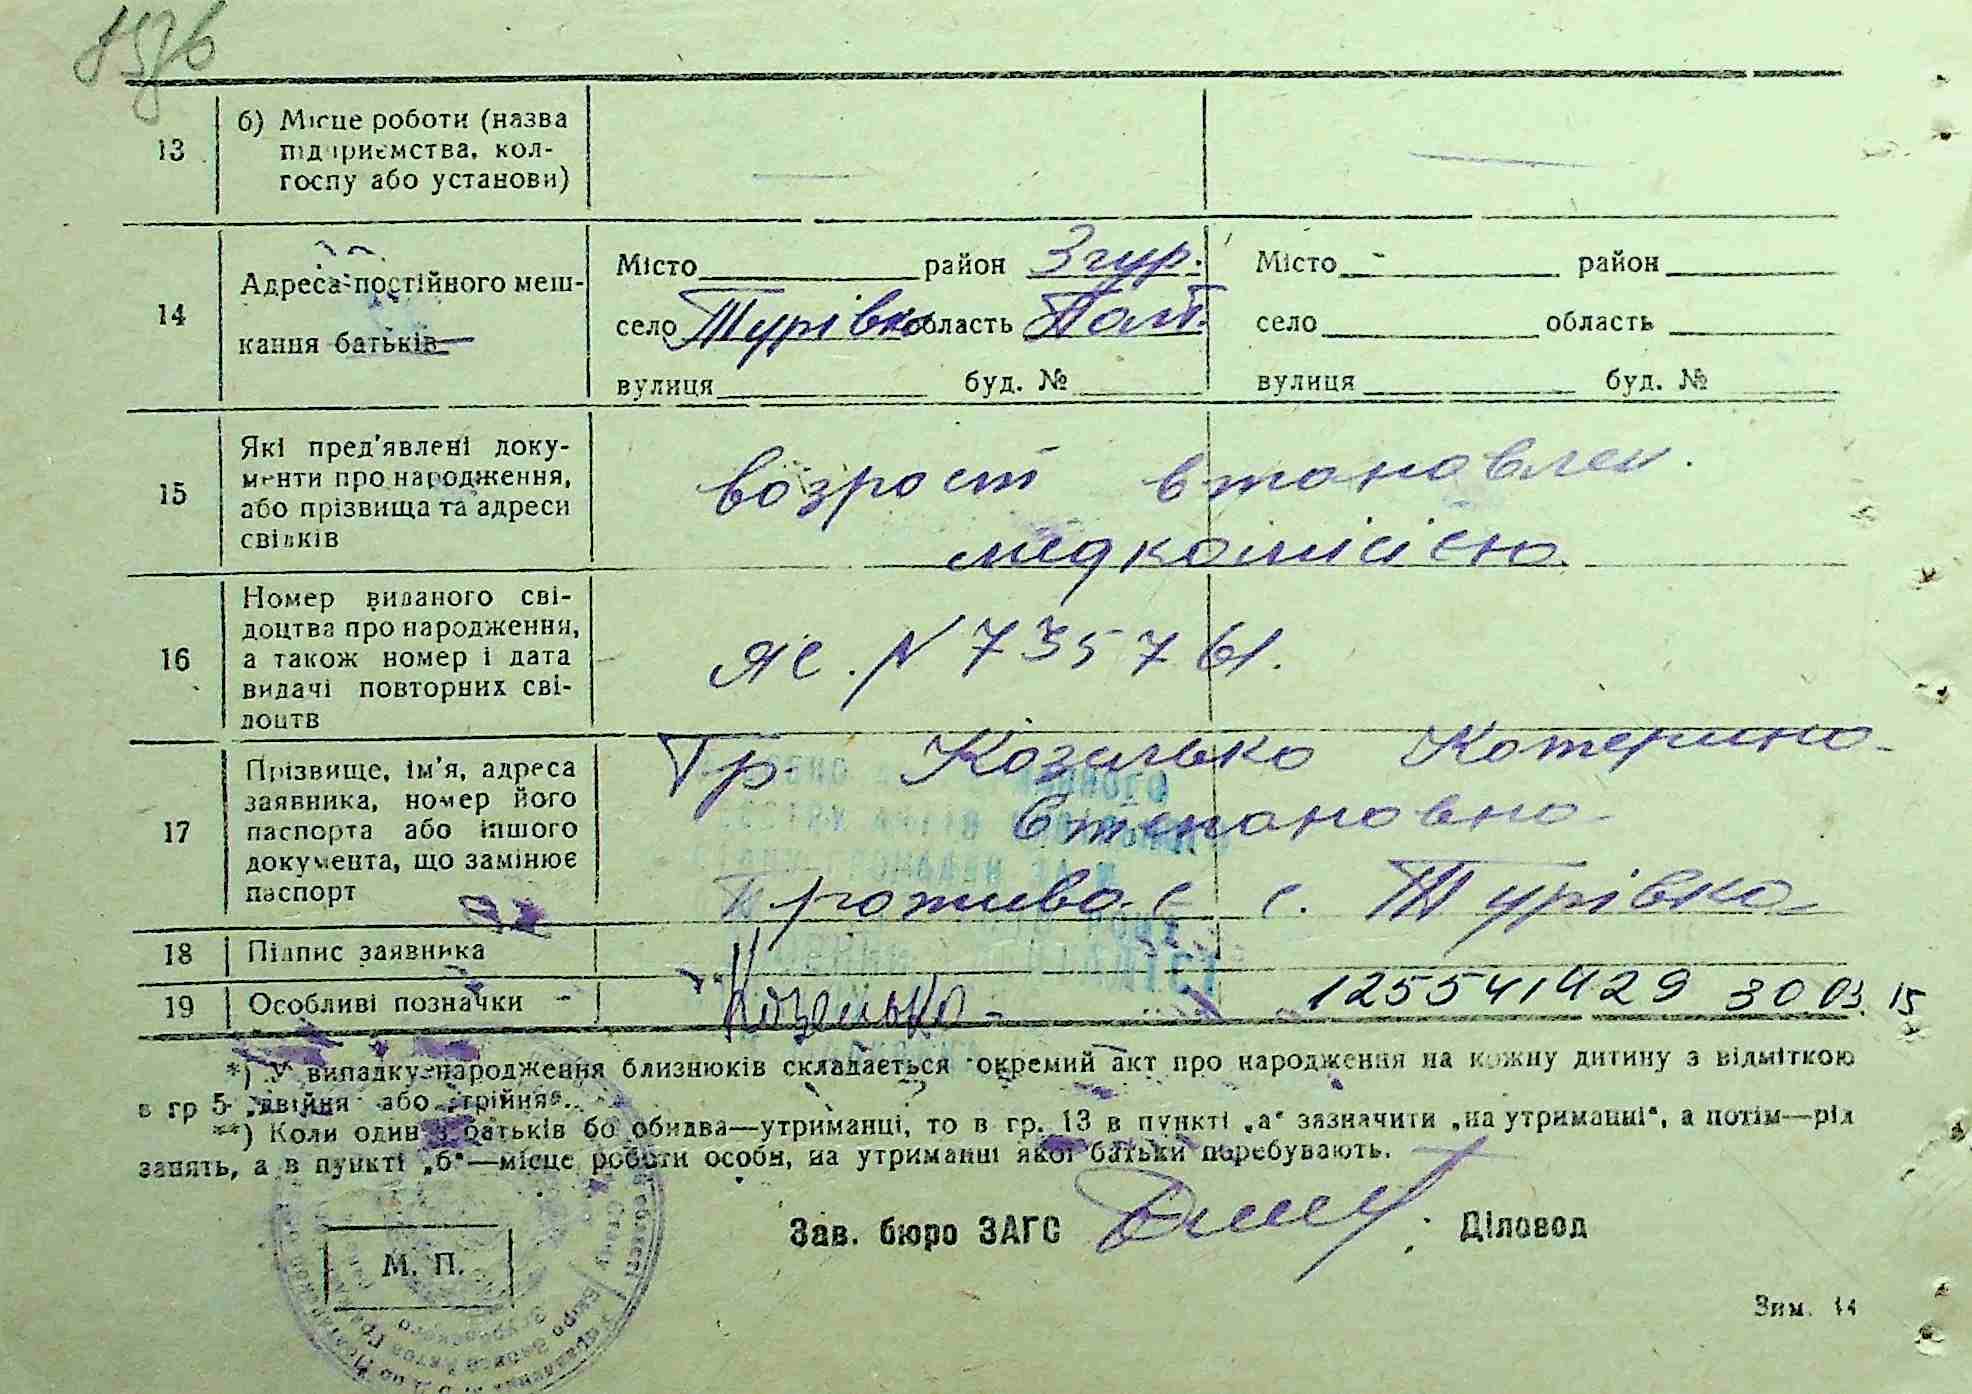 13
б) Місце роботи (назва
підприємства, кол-
госпу або установи)
14
Адреса постійного меш-
кання батьків
Місто район Згур.
село Турівка область Полт.
вулиця буд. №
Місто район
село область
вулиця буд. №
15
Які пред'явлені доку-
менти про народження,
або прізвища та адреси
свідків
возраст встановлен.
медкомісією.
16
Номер виданого сві-
доцтва про народження,
а також номер і дата
видачі повторних сві-
доцтв
ЯС. N 735761.
17
Прізвище, ім'я, адреса
заявника, номер його
паспорта або іншого
документа, що замінює
паспорт
Гр. Катерина
Степановна
Прожива є с. Турівка
18
Підпис заявника
19
Особливі позначки
1255541429 30 03. 15
*) У випадку народження близнюків складається окремий акт про народження на кожну дитину з відміткою
в гр 5 „двійня" або „трійня".
**) Коли один з батьків бо обидва—утриманці, то в гр. 13 в пункті „а" зазначити „на утриманні", а потім—рід
занять, а в пункті „б"—місце роботи особи, на утриманні якої батьки перебувають.
Зав. бюро ЗАГС
Діловод
М. П.
Зим. 14